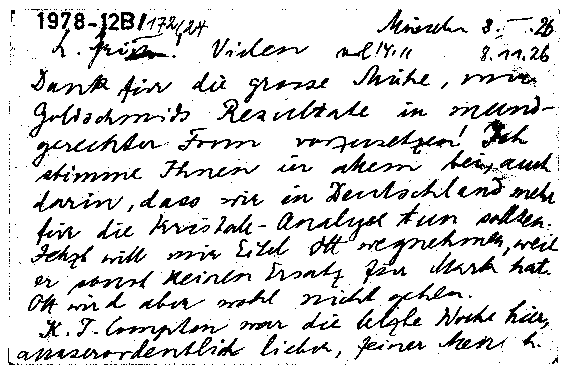 1978-12B/172/24 München 8. 26
L. Vielen 8.11.26
Dank für die grosse Mühe, mir
Goldschmids Resultate in mund-
gerechter Form vorzusetzen! Ich
stimme Ihnen in allem bei, auch
darin, dass wir in Deutschland mehr
für die Kristall-Analyse tun sollten.
Jetzt will mir Eitel Ott wegnehmen, weil
er sonst keinen Ersatz für Mark hat.
Ott wird aber wohl nicht gehen.
K. T. Compton war die letzte Woche hier,
ausserordentlich lieber, feiner Mensch.